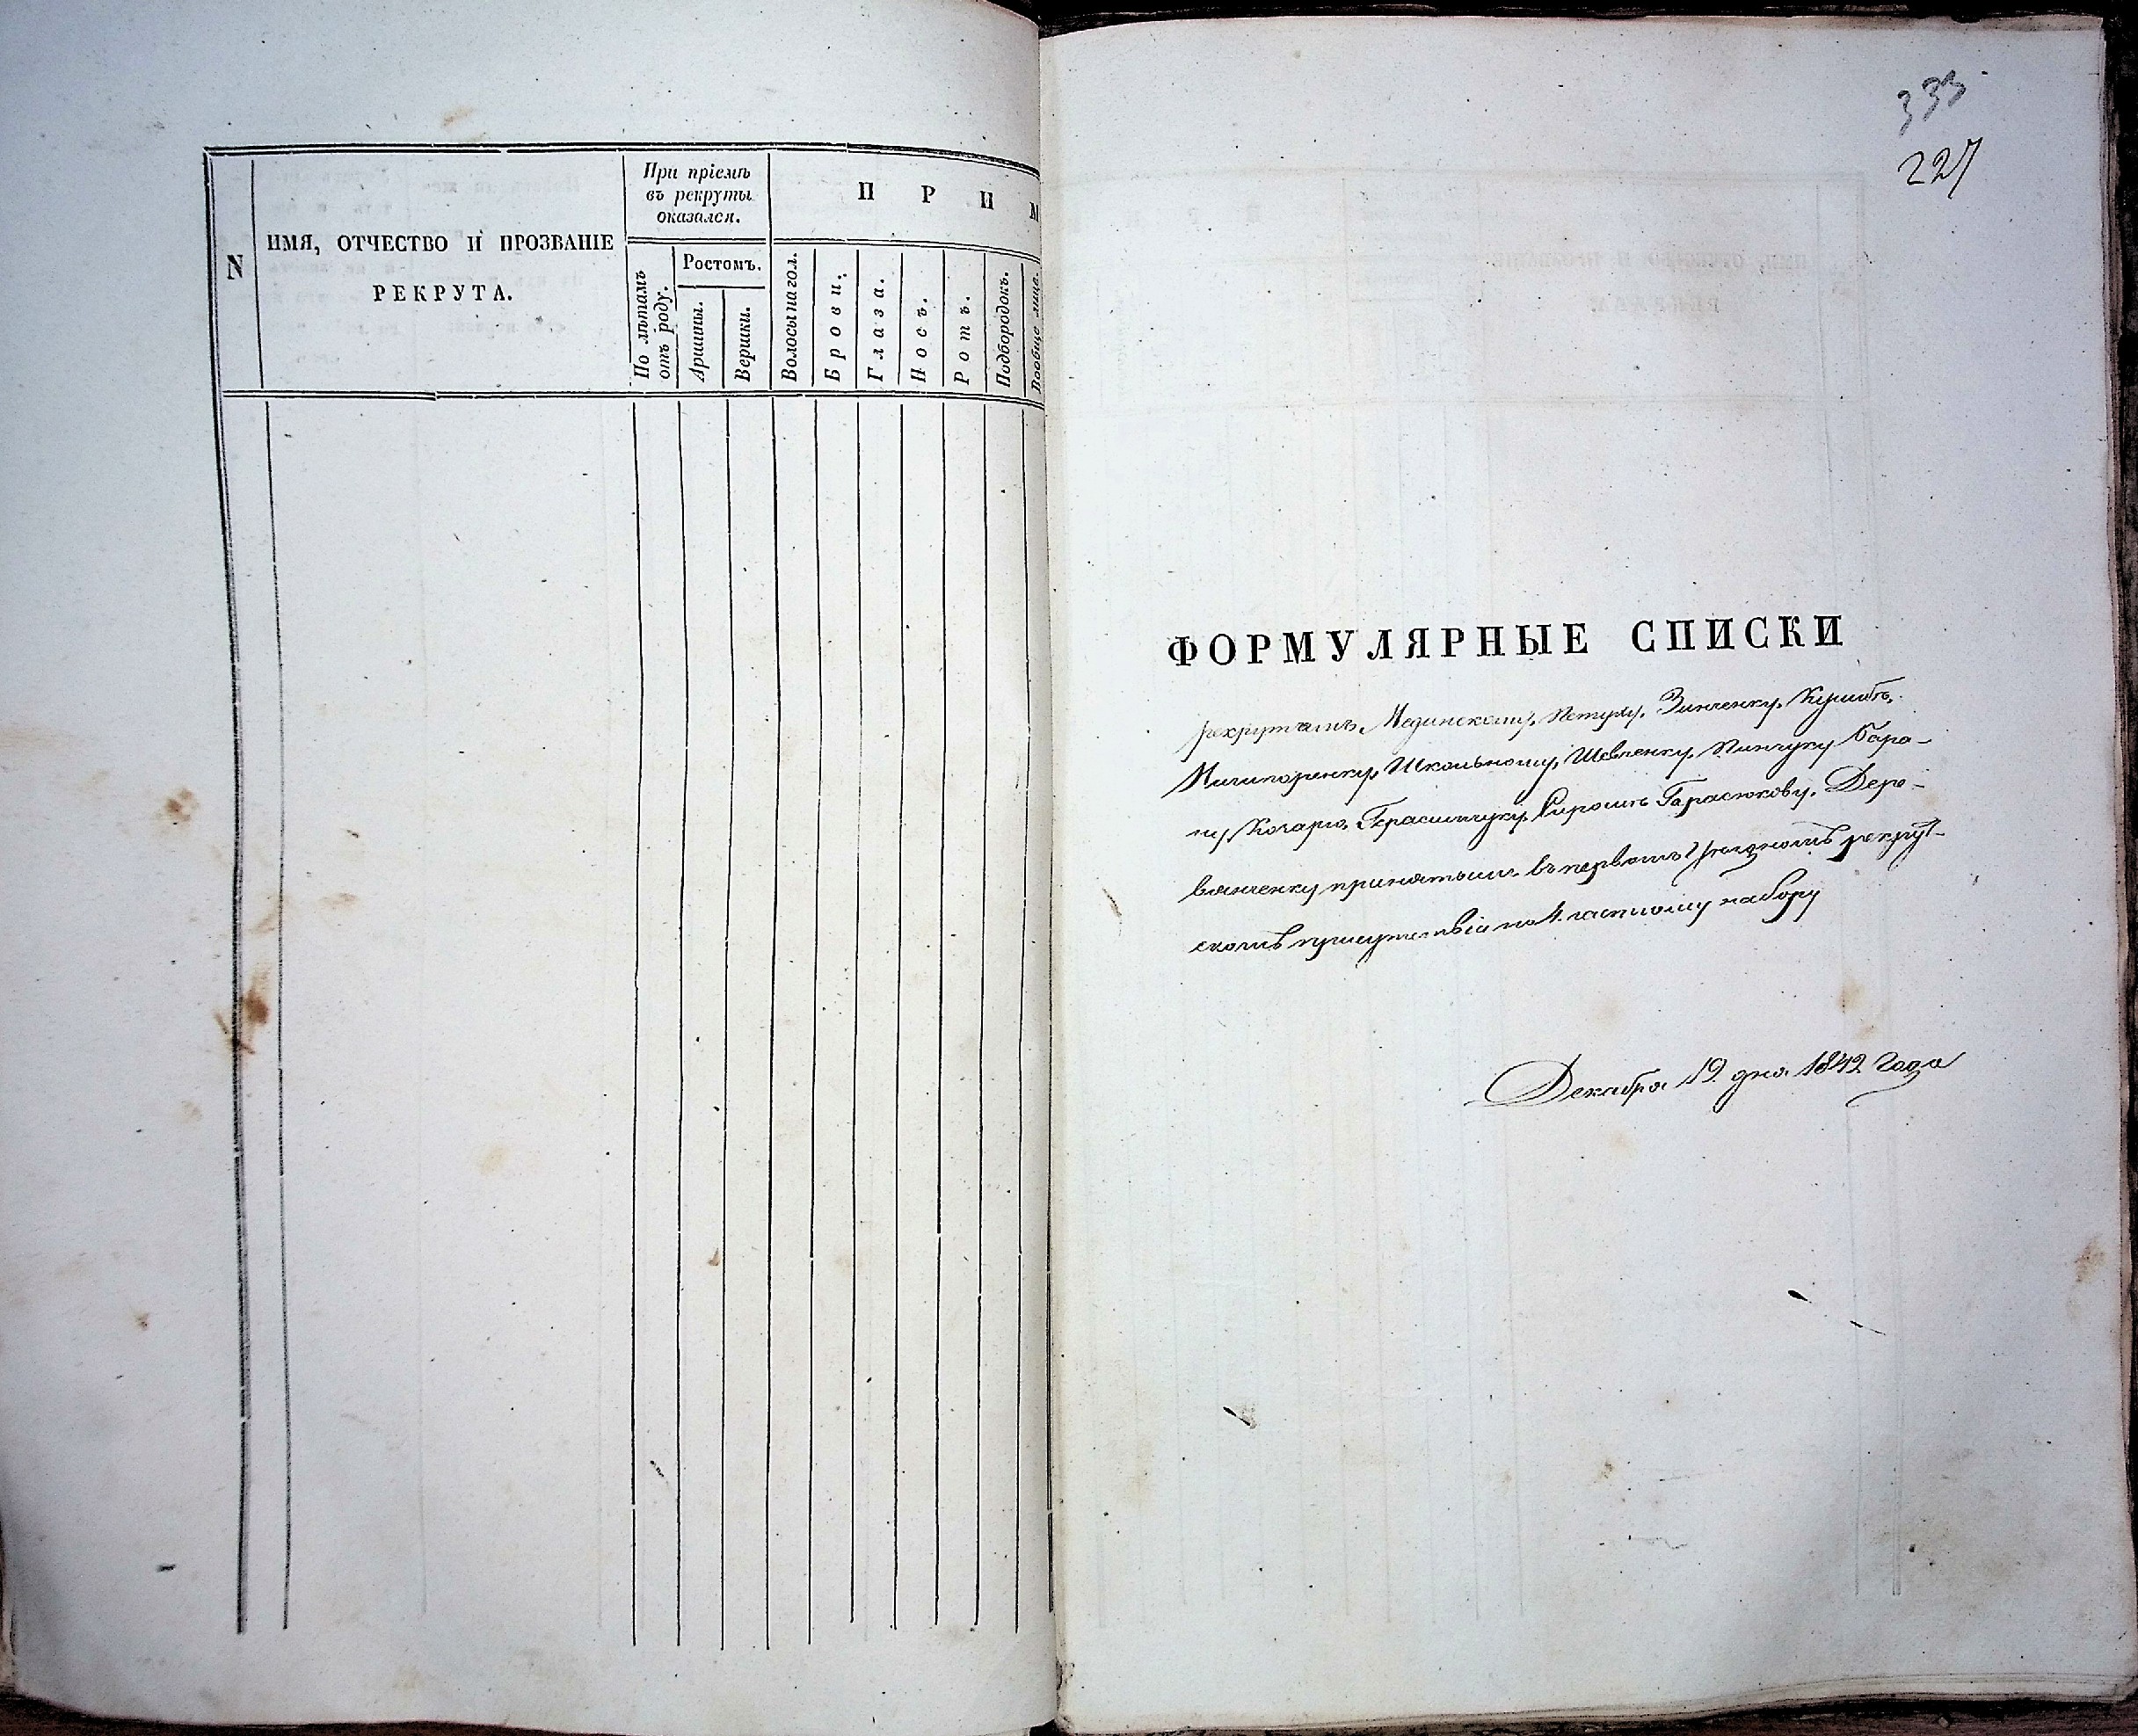 N
ИМЯ, ОТЧЕСТВО И ПРОЗВАНІЕ
РЕКРУТА.
При пріемѣ
въ рекруты
оказался.
По лѣтамъ
отъ роду.
Ростомъ.
Аршины.
Вершки.
П Р И М
Волосы на гол.
Брови.
Глаза.
Носъ.
Ротъ.
Подбородокъ.
Вообще лице.
333
227
ФОРМУЛЯРНЫЕ СПИСКИ
рекрутамъ, Мединскому, Зинченку,
Ничипоренку, Школьному, Шевченку, Пинчуку Бара-
ну, Кочарю, Герасимчуку, Сирошь Гарасюкову, Дере-
вянченку принятымъ въ первомъ уѣздномъ рекрут-
скомъ присутствіи по 4 частному набору
Декабря 19 дня 1842 года